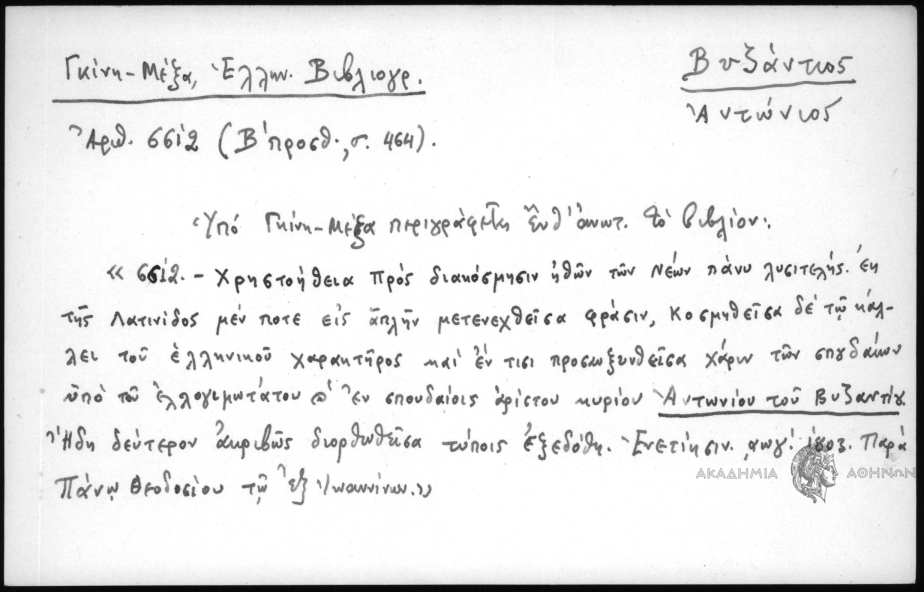 Γκίνη-Μέξα, Ἑλλην. Βιβλιογρ.
Βυζάντιος
Ἀντώνιος
Ἀριθ. 6612 (Β' προσθ., σ. 464).
Ὑπό Γκίνη-Μέξα περιγράφεται ἔνθ' ἀνωτ. τὸ βιβλίον:
« 6612. - Χρηστοήθεια πρός διακόσμησιν ἠθῶν τῶν Νέων πάνυ λυσιτελής. ἐκ
τῆς Λατινίδος μέν ποτε εἰς ἁπλῆν μετενεχθεῖσα φράσιν, κοσμηθεῖσα δέ τῷ κάλ-
λει τοῦ ἑλληνικοῦ χαρακτῆρος καί ἔν τισι προσωξυνθεῖσα χάριν τῶν σπουδαίων
ὑπό τοῦ ἐλλογιμωτάτου ἐν σπουδαίοις ἀρίστου κυρίου Ἀντωνίου τοῦ Βυζαντίου.
Ἤδη δεύτερον ἀκριβῶς διορθωθεῖσα τύποις ἐξεδόθη. Ἐνετίησιν. ͵αωγ'. 1803. Παρά
Πάνῳ Θεοδοσίου τῷ ἐξ Ἰωαννίνων.»
ΑΚΑΔΗΜΙΑ ΑΘΗΝΩΝ